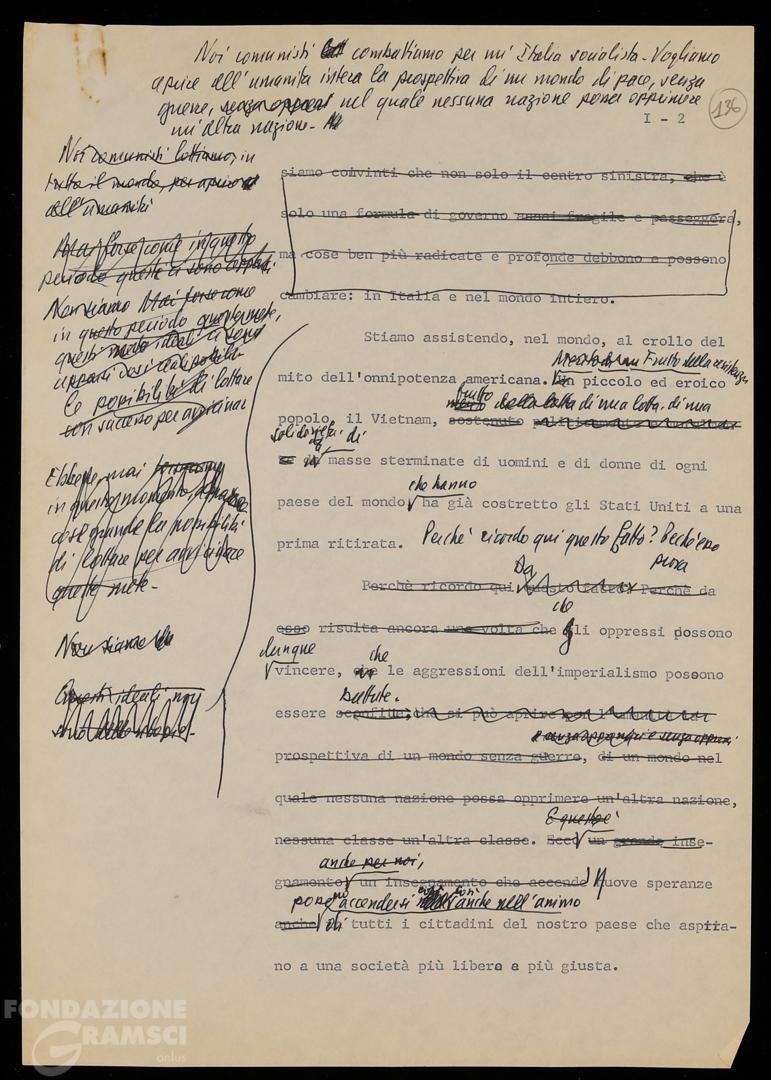 Noi comunisti combattiamo per un'Italia socialista - Vogliamo
aprire all'umanità intera la prospettiva di un mondo di pace, senza
guerre, senza oppressi nel quale nessuna nazione possa opprimere
un'altra nazione -
136
I - 2
Noi comunisti lottiamo, in
tutto il mondo, per aprire
all'umanità
siamo convinti che non solo il centro sinistra, che è
solo una formula di governo assai fragile e passeggera,
ma cose ben più radicate e profonde debbono e possono
cambiare: in Italia e nel mondo intiero.
Mai forse come in questo
periodo questi ci sono apparsi
Non siamo Mai forse come
in questo periodo
questi ideali ci sono
apparsi così
le possibilità di lottare
con successo per avvicinar
Stiamo assistendo, nel mondo, al crollo del
Frutto della resistenza
mito dell'onnipotenza americana. Un piccolo ed eroico
frutto della lotta di una lotta, di una
popolo, il Vietnam, sostenuto
solidarietà di
masse sterminate di uomini e di donne di ogni
che hanno
paese del mondo ha già costretto gli Stati Uniti a una
prima ritirata. Perché ricordo qui questo fatto? Perché esso
prova
Ebbene, mai
in questo momento,
così grande la possibilità
di lottare per avvicinare
queste mete -
Perchè ricordo qui questo fatto? Perchè da
esso risulta ancora una volta che gli oppressi possono
che
dunque
che
vincere, che le aggressioni dell'imperialismo possono
Non siamo
battute.
essere sconfitte; che si può aprire all'umanità la
Questi ideali noi
prospettiva di un mondo senza guerre, di un mondo nel
quale nessuna nazione possa opprimere un'altra nazione,
E questo è
nessuna classe un'altra classe. Ecco un grande inse-
anche per noi,
gnamento un insegnamento che accende nuove speranze
possono accendersi così anche nell'animo
anche di tutti i cittadini del nostro paese che aspira-
no a una società più libera e più giusta.
FONDAZIONE
GRAMSCI
onlus